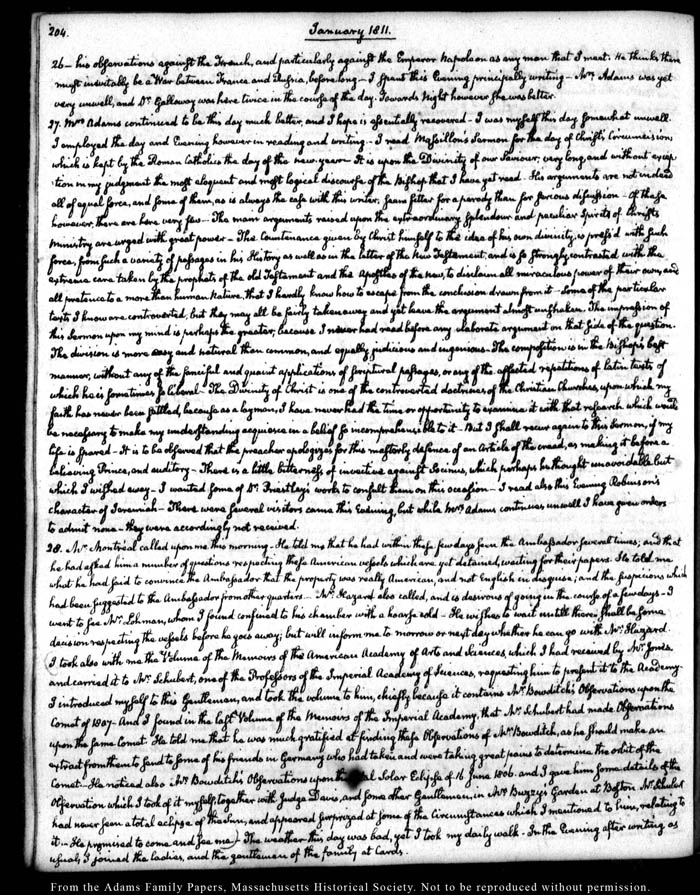 204.
January 1811.
26 – his observations against the French, and particularly against the Emperor Napoleon as any man that I meet. He thinks there
must inevitably be a War between France and Russia, before long – I spent this Evening principally writing – Mrs. Adams was yet
very unwell, and Dr. Galloway was here twice in the course of the day. Towards Night however she was better.
27. Mrs. Adams continued to be this day much better, and I hope is essentially recovered – I was myself this day somewhat unwell.
I employed the day and Evening however in reading and writing – I read Massillon's Sermon for the day of Christ's Circumcision
which is kept by the Roman Catholics the day of the new-year – It is upon the Divinity of our Saviour, very long, and without excep
-tion in my judgment the most eloquent and most logical discourse of the Bishop that I have yet read. His arguments are not indeed
all of equal force, and some of them, as is always the case with this writer, seem fitter for a parody than for serious discussion – Of these
however, there are here very few – The main arguments raised upon the extraordinary splendour and peculiar Spirit of Christ's
Ministry are urged with great power – The Countenance given by Christ himself to the idea of his own divinity, is press'd with such
force, from such a variety of passages in his History as well as in the letter of the New Testament, and is so strongly contrasted with the
extreme care taken by the prophets of the old Testament and the Apostles of the new, to disclaim all miraculous power of their own, and
all pretence to a more than human Nature, that I hardly know how to escape from the conclusion drawn from it – Some of the particular
texts I know are controverted, but they may all be fairly taken away and yet leave the argument almost unshaken. The impression of
this Sermon upon my mind is perhaps the greater, because I never had read before any elaborate argument on that side of the question.
The division is more easy and natural than common, and equally judicious and ingenious. The composition is in the Bishop's best
manner, without any of the fanciful and quaint applications of scriptural passages, or any of the affected repetitions of latin texts of
which he is sometimes so liberal – The Divinity of Christ is one of the controverted doctrines of the Christian Churches, upon which my
faith has never been settled, because as a layman, I have never had the time or opportunity to examine it with that research which would
be necessary to make my understanding acquiesce in a belief so incomprehensible to it. But I shall recur again to this Sermon, if my
life is spared – It is to be observed that the preacher apologizes for this masterly defence of an Article of the creed, as making it before a
believing Prince, and auditory – There is a little bitterness of invective against Socinus, which perhaps he thought unavoidable but
which I wished away – I wanted some of Dr. Priestley's works to consult them on this occasion – I read also this Evening Robinson's
character of Jeremiah – There were several visitors came this Evening, but while Mrs. Adams continues unwell I have given orders
to admit none – they were accordingly not received.
28. Mr. Montreal called upon me this morning – He told me that he had within these few days seen the Ambassador several times, and that
he had asked him a number of questions respecting these American vessels which are yet detained, waiting for their papers. He told me
what he had said to convince the Ambassador that the property was really American, and not English in disguise; and the suspicions which
had been suggested to the Ambassador from other quarters – Mr. Hazard also called, and is desirous of going in the course of a few days – I
went to see Mr. Lohman, whom I found confined to his chamber with a hoarse cold – He wishes to wait untill there shall be some
decision respecting the vessels before he goes away; but will inform me to morrow or next day whether he can go with Mr. Hazard.
I took also with me the Volume of the Memoirs of the American Academy of Arts and Sciences, which I had received by Mr. Jones,
and carried it to Mr. Schubert, one of the Professors of the Imperial Academy of Sciences, requesting him to present it to the Academy.
I introduced myself to this Gentleman, and took the volume to him, chiefly because it contains Mr. Bowditch's Observations upon the
Comet of 1807. And I found in the last Volume of the Memoirs of the Imperial Academy, that Mr. Schubert had made Observations
upon the same Comet. He told me that he was much gratified at finding these Observations of Mr. Bowditch, as he should make an
extract from them to send to some of his friends in Germany who had taken and were taking great pains to determine the orbit of the
Comet – He noticed also Mr. Bowditch's Observations upon the Solar Eclipse of 16 June 1806. and I gave him some details of the
Observation which I took of it myself, together with Judge Davis, and some other Gentlemen, in Mr. Bussey's Garden at Boston. Mr. Schubert
had never seen a total eclipse of the Sun, and appeared surprized at some of the Circumstances which I mentioned to him, relating to
it – He promised to come and see me) – The weather this day was bad, yet I took my daily walk – In the Evening after writing as
usual, I joined the ladies, and the gentlemen of the family at Cards.
From the Adams Family Papers, Massachusetts Historical Society. Not to be reproduced without permission.